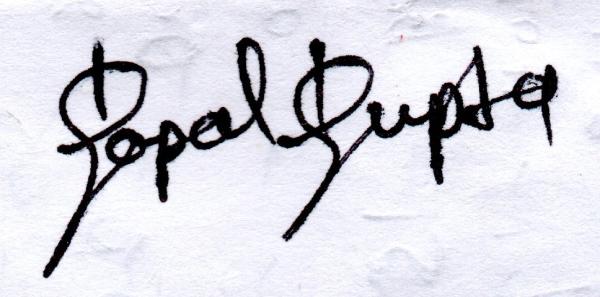 Gopal Gupta